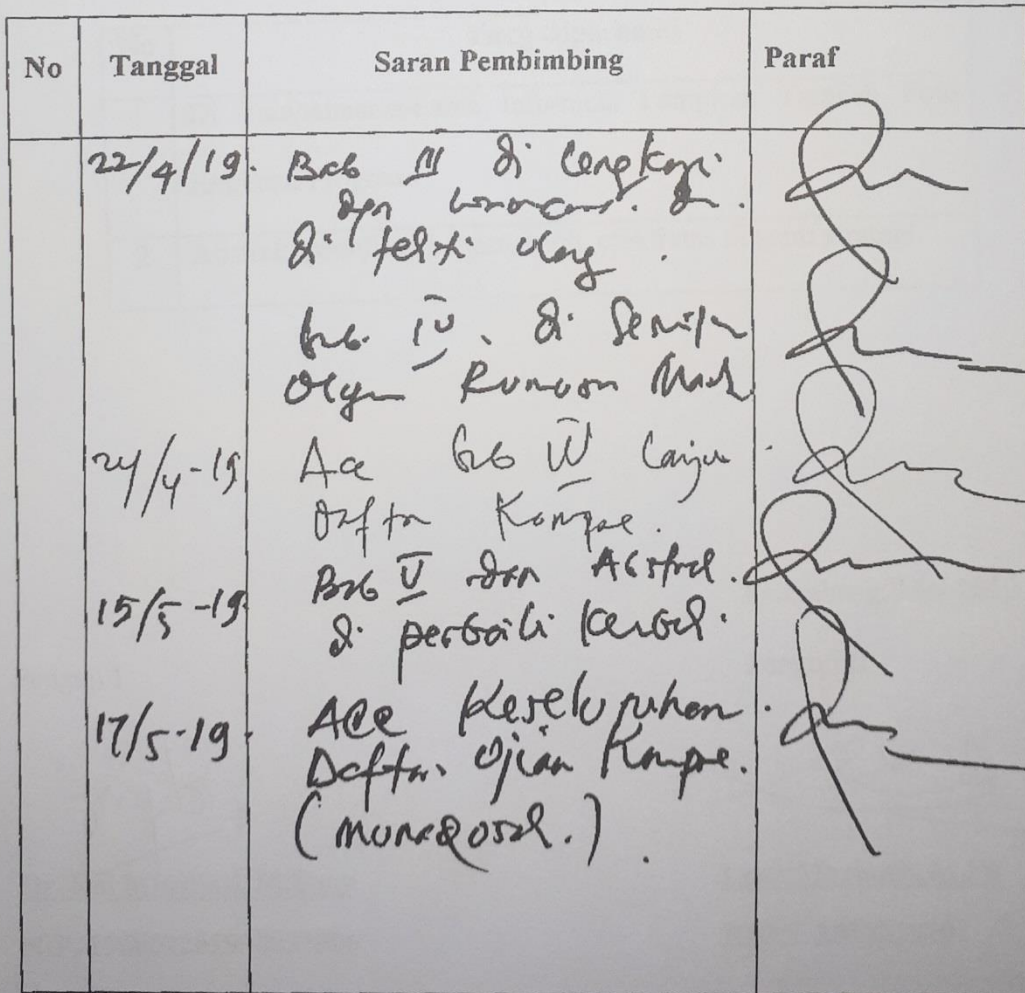 No Tanggal Saran Pembimbing Paraf
22/4/19. Bab III di lengkapi
dgn dan.
di teliti ulang.
Bab IV. di
Rumusan Masalah
24/4-19 Acc Bab IV lanju
Daftar Kompre.
Bab V dan Abstrak.
15/5-19 di perbaiki kembali.
17/5-19 Acc Keseluruhan.
Daftar Ujian Kompre.
(Munaqosah.)